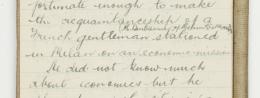 fortunate enough to make
the acquaintanceship of
French gentleman stationed
in Milan on an economic mission
He did not know much
about economics but he